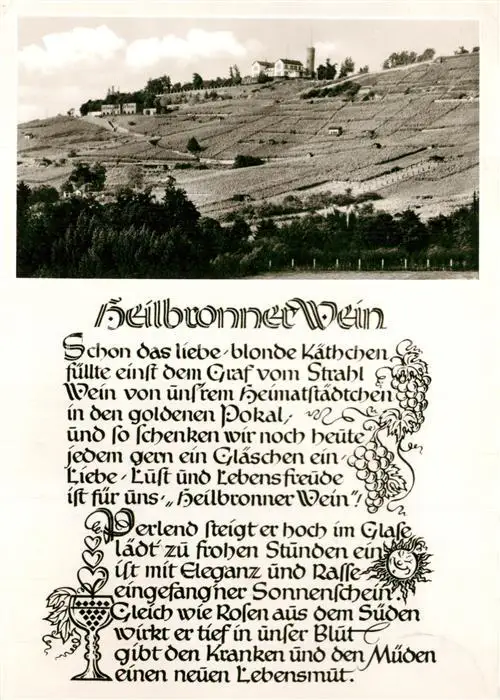 Heilbronner Wein
Schon das liebe, blonde Käthchen
füllte einst dem Graf vom Strahl
Wein von uns'rem Heimatstädtchen
in den goldenen Pokal,
und so schenken wir noch heute
jedem gern ein Gläschen ein,
Liebe, Lust und Lebensfreude
ist für uns, „Heilbronner Wein"!
Perlend steigt er hoch im Glase
lädt zu frohen Stunden ein
ist mit Eleganz und Rasse
eingefang'ner Sonnenschein.
Gleich wie Rosen aus dem Süden
wirkt er tief in unser Blut
gibt den Kranken und den Müden
einen neuen Lebensmut.